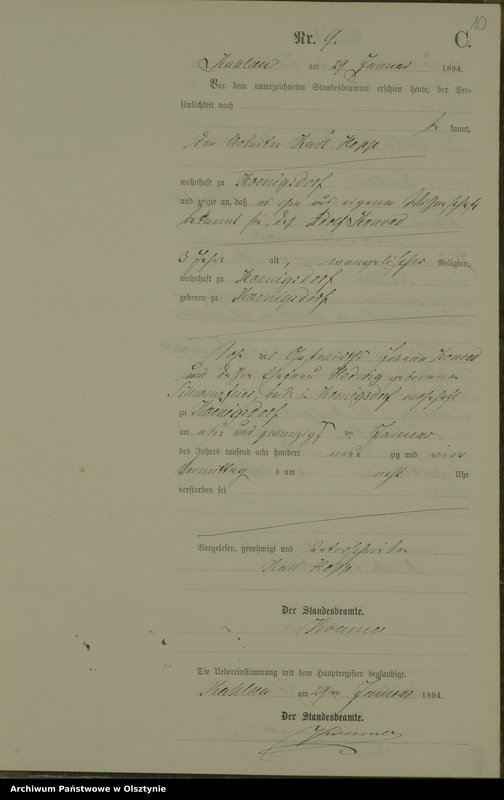 10
Nr. 9. C.
Kahlau am 29 Januar 1894.
Vor dem unterzeichneten Standesbeamten erschien heute, der Per-
sönlichkeit nach
be kannt,
der Arbeiter Karl Hopp
wohnhaft zu Koenigsdorf
und zeigte an, daß es ihm aus eigener Wissenschaft
bekannt sei, daß Adolf Konrad
3 Jahre alt, evangelischer Religion,
wohnhaft zu Koenigsdorf
geboren zu Koenigsdorf
Sohn des Johann Konrad
und dessen Ehefrau Hedwig geborenen
beide in Koenigsdorf wohnhaft
zu Koenigsdorf
am acht und zwanzigst ten Januar
des Jahres tausend acht hundert neun zig und vier
Vormittag s um acht Uhr
verstorben sei
Vorgelesen, genehmigt und unterschrieben
Karl Hopp
Der Standesbeamte.
Die Uebereinstimmung mit dem Hauptregister beglaubigt.
Kahlau am 29 ten Januar 1894.
Der Standesbeamte.
Archiwum Państwowe w Olsztynie